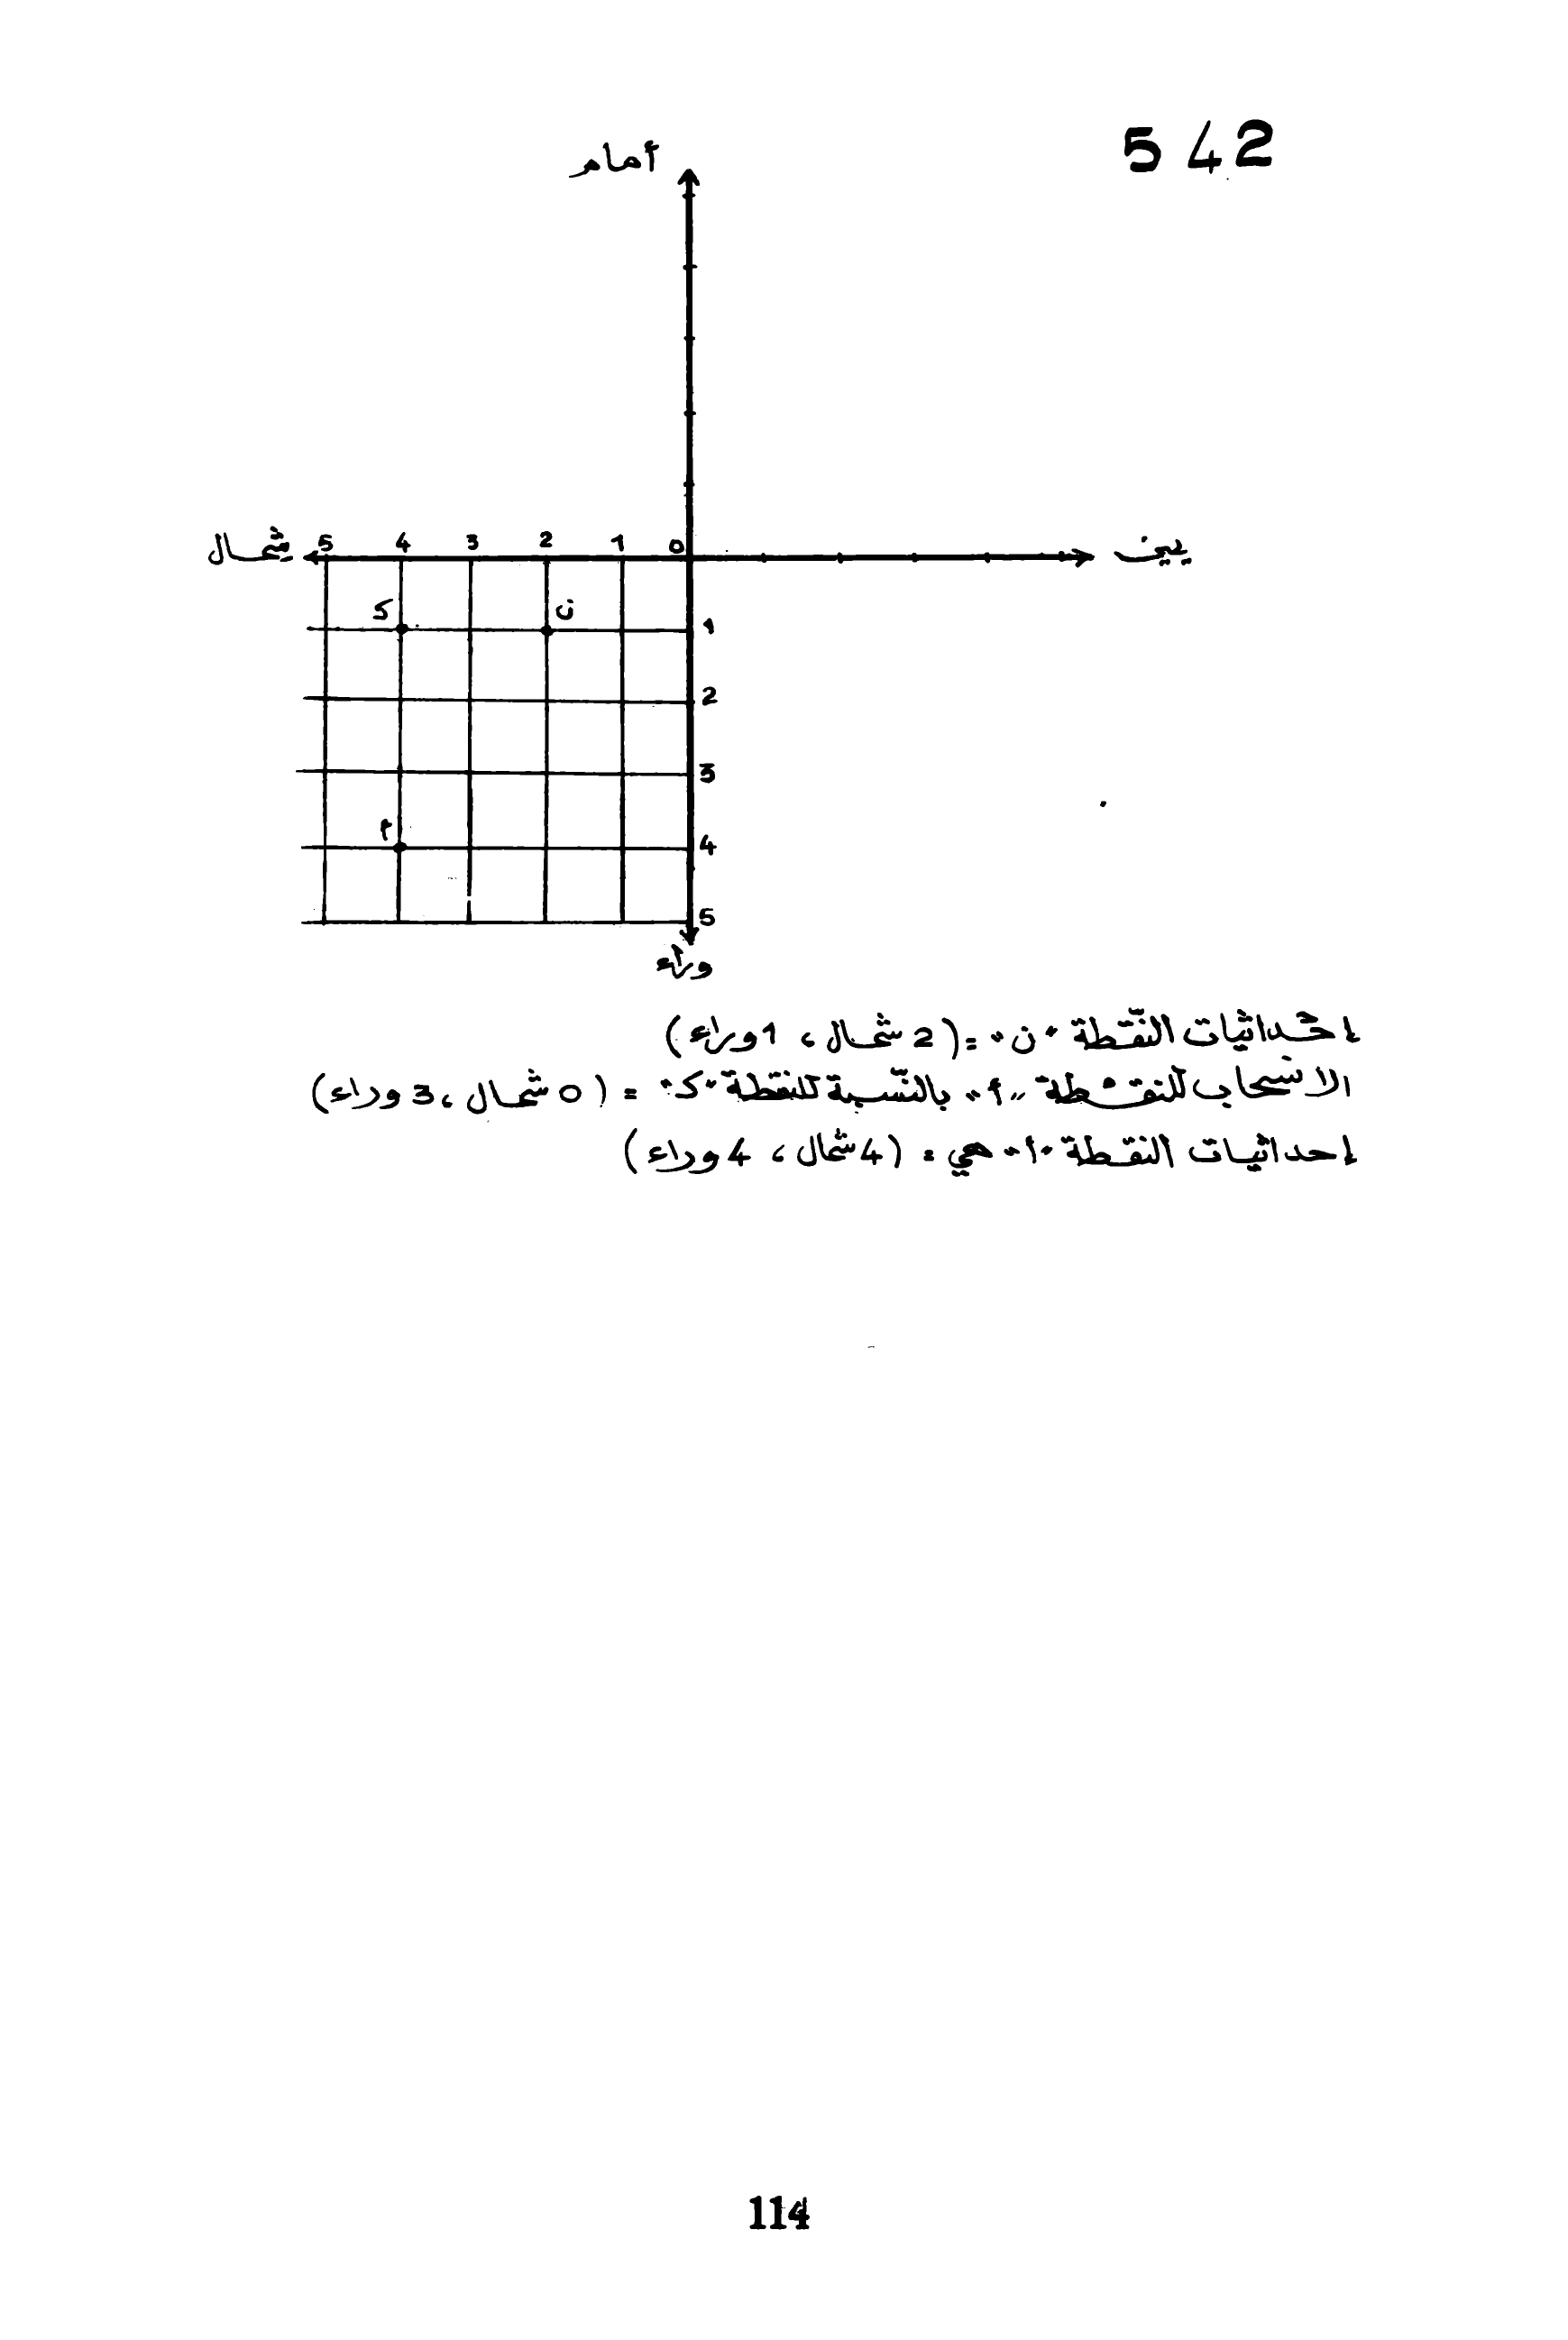 542
أمام
شمال 5 4 3 2 1 0 يمين
ك ن
1
2
3
أ
4
5
وراء
إحداثيات النّقطة "ن" = (2 شمال ، 1 وراء)
الانسحاب للنقطة "أ" بالنّسبة للنقطة "ك" = (0 شمال ، 3 وراء)
إحداثيات النقطة "أ" هي = (4 شمال ، 4 وراء)
114